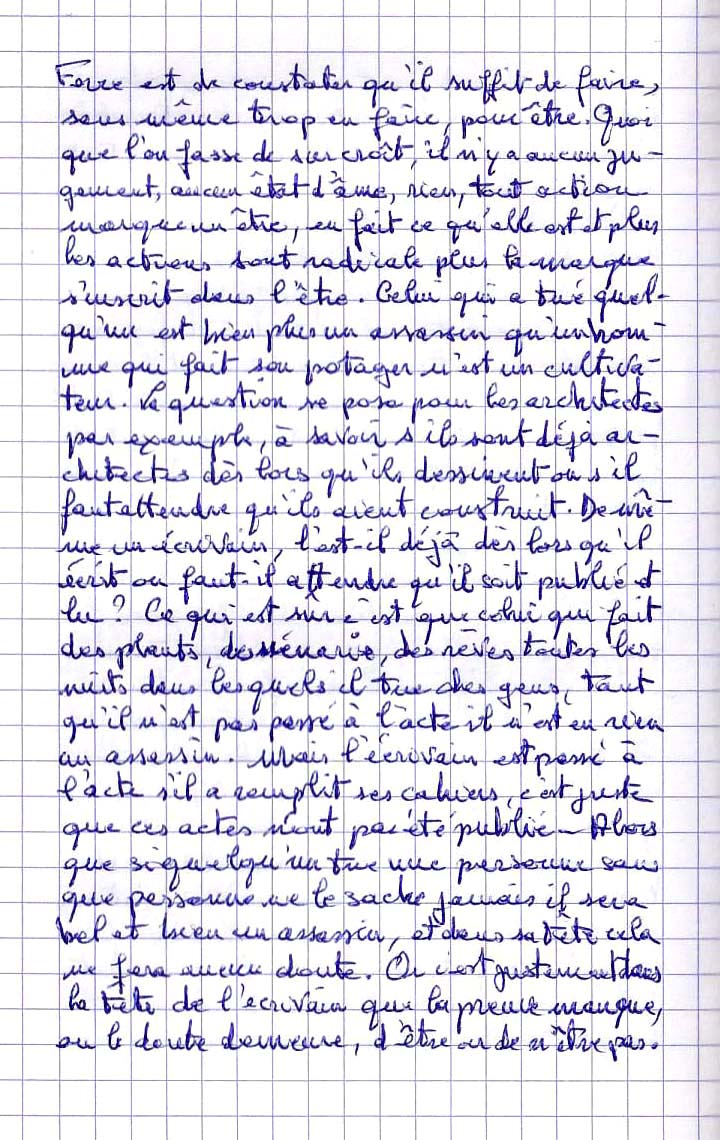 Force est de constater qu'il suffit de faire,
sans même trop en faire, pour être. Quoi
que l'on fasse de surcroît, il n'y a aucun ju-
gement, aucun état d'âme, rien, tout action
marque un être, en fait ce qu'elle est et plus
les actions sont radicale plus la marque
s'inscrit dans l'être. Celui qui a tué quel-
qu'un est bien plus un assassin qu'un hom-
me qui fait son potager n'est un cultiva-
teur. La question se pose pour les architectes
par exemple, à savoir s'ils sont déjà ar-
chitectes dès lors qu'ils dessinent ou s'il
faut attendre qu'ils aient construit. De mê-
me un écrivain, l'est-il déjà dès lors qu'il
écrit ou faut-il attendre qu'il soit publié et
lu ? Ce qui est sûr c'est que celui qui fait
des plants, des scénario, des rêves toutes les
nuits dans lesquels il tue des gens, tant
qu'il n'est pas passé à l'acte il n'est en rien
un assassin. Mais l'écrivain est passé à
l'acte s'il a remplit ses cahiers, c'est juste
que ces actes n'ont pas été publié - Alors
que si quelqu'un tue une personne sans
que personne ne le sache jamais il sera
bel et bien un assassin, et dans sa tête cela
ne fera aucun doute. Or c'est justement dans
la tête de l'écrivain que la preuve manque,
ou le doute demeure, d'être ou de n'être pas.